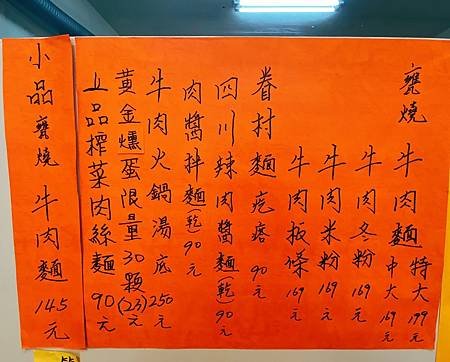 甕燒
牛肉麵 特大 199元
中大 169元
牛肉冬粉 169元
牛肉米粉 169元
牛肉板條 169元
眷村麵疙瘩 90元
四川辣肉醬麵(乾)90元
肉醬拌麵(乾)90元
牛肉火鍋湯底 250元
黃金燻蛋限量30顆(23)元
上品榨菜肉絲麵 90元
小品甕燒 牛肉麵 145元